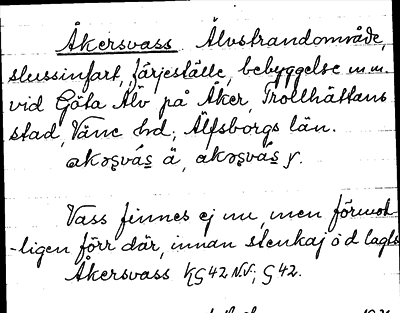 Åkersvass Älvstrandområde,
slussinfart, färjeställe, bebyggelse m.m.
vid Göta Älv på Åker, Trollhättans
stad, Väne hd, Älfsborgs län.
akəşvás̱ ä, akəşvás̱ y.
Vass finnes ej nu, men förmod-
-ligen förr där, innan stenkaj o d lagts
Åkersvass KG42 NV; G42.